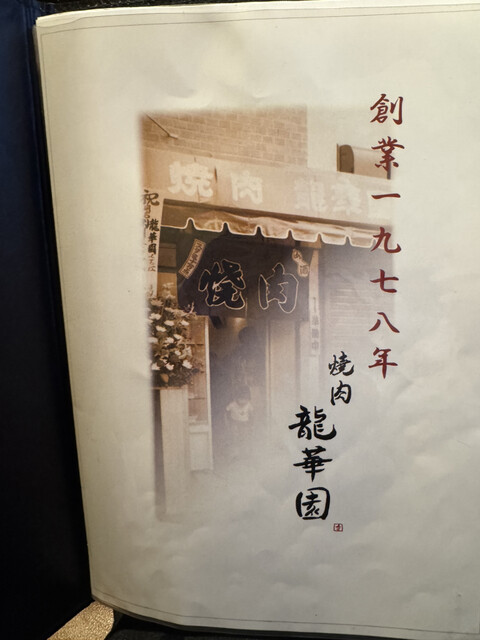 創業一九七八年
焼肉
龍華園
焼肉
焼肉
龍華園